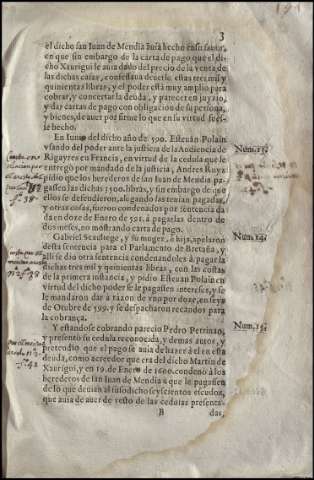 3
el dicho san Iuan de Mendia
en que sin embargo de la carta de pago que el dicho
Xaurigui le auia dado del precio de la venta de
las dichas casas, confessaua deuerle estas tres mil y
quinientas libras, y el poder está muy amplio para
cobrar, y concertar la deuda, y parecer en juyzio,
y dar cartas de pago con obligacion de su persona,
y bienes, de auer por firme lo que en su virtud fuesse
hecho.
En Iunio del dicho año de 590. Esteuan Polain
vsando del poder ante la justicia de la Audiencia de
Rigayres en Francia, en virtud de la cedula que le
entregó por mandado de la justicia, Andres Ruyz
pidio que los herederos de san Iuan de Mendia pagassen
las dichas 3500. libras, y sin embargo de que
ellos se defendieron, alegando las tenian pagadas,
y otras cosas, fueron condenados por sentencia dada
en doze de Enero de 591. á pagarlas dentro de
dos meses, no mostrando carta de pago.
Num. 13.
Gabriel y su muger, é hija, apelaron
desta sentencia para el Parlamento de Bretaña, y
alli se dio otra sentencia condenandoles á pagar las
dichas tres mil y quinientas libras, con las costas
de la primera instancia, y pidio Esteuan Polain en
virtud del dicho poder se le pagassen interesses, y se
le mandaron dar à razon de vno por doze, en seys
de Octubre de 599. y se despacharon recados para
la cobrança.
Num. 14.
Y estandose cobrando parecio Pedro Perrinao,
y presentó su cedula reconocida, y demas autos, y
pretendio que el pago se auia de hazer á el en esta
deuda, como acreedor que era del dicho Martin de
Xaurigui, y en 19. de Enero de 1600. condenó á los
herederos de san Iuan de Mendia á que le pagassen
de lo que deuian al susodicho seyscientos escudos,
que auia de auer de resto de las cedulas presenta-
Num. 15.
B
das,